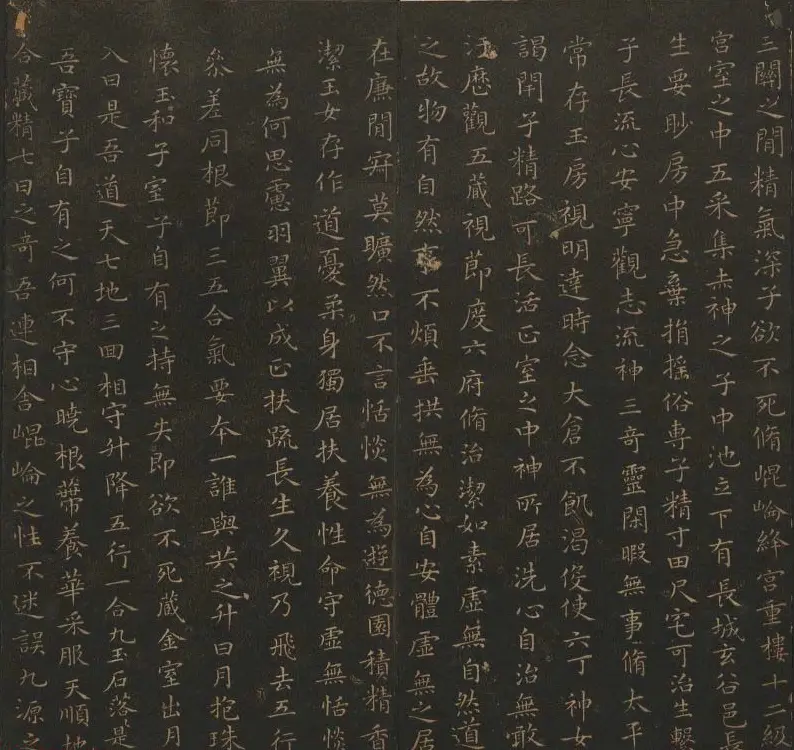 三關之間精氣深子欲不死脩崐崘絳宮重樓十二級
宮室之中五采集赤神之子中池立下有長城玄谷邑長
生要眇房中急棄捐搖俗專子精寸田尺宅可治生繫
子長流心安寧觀志流神三奇靈閑暇無事脩太平
常存玉房視明達時念大倉不飢渴伇使六丁神女
謁閉子精路可長活正室之中神所居洗心自治無敢
汙歷觀五藏視節度六府脩治潔如素虛無自然道
之故物有自然事不煩垂拱無為心自安體虛無之居
在廉間寂莫曠然口不言恬惔無為遊德園積精香
潔玉女存作道憂柔身獨居扶養性命守虛無恬惔
無為何思慮羽翼以成正扶疏長生久視乃飛去五行
參差同根節三五合氣要本一誰與共之升日月抱珠
懷玉和子室子自有之持無失即欲不死藏金室出月
入日是吾道天七地三回相守升降五行一合九玉石落是
吾寶子自有之何不守心曉根蔕養華采服天順地
合藏精七日之奇吾連相舍崐崘之性不迷誤九源之